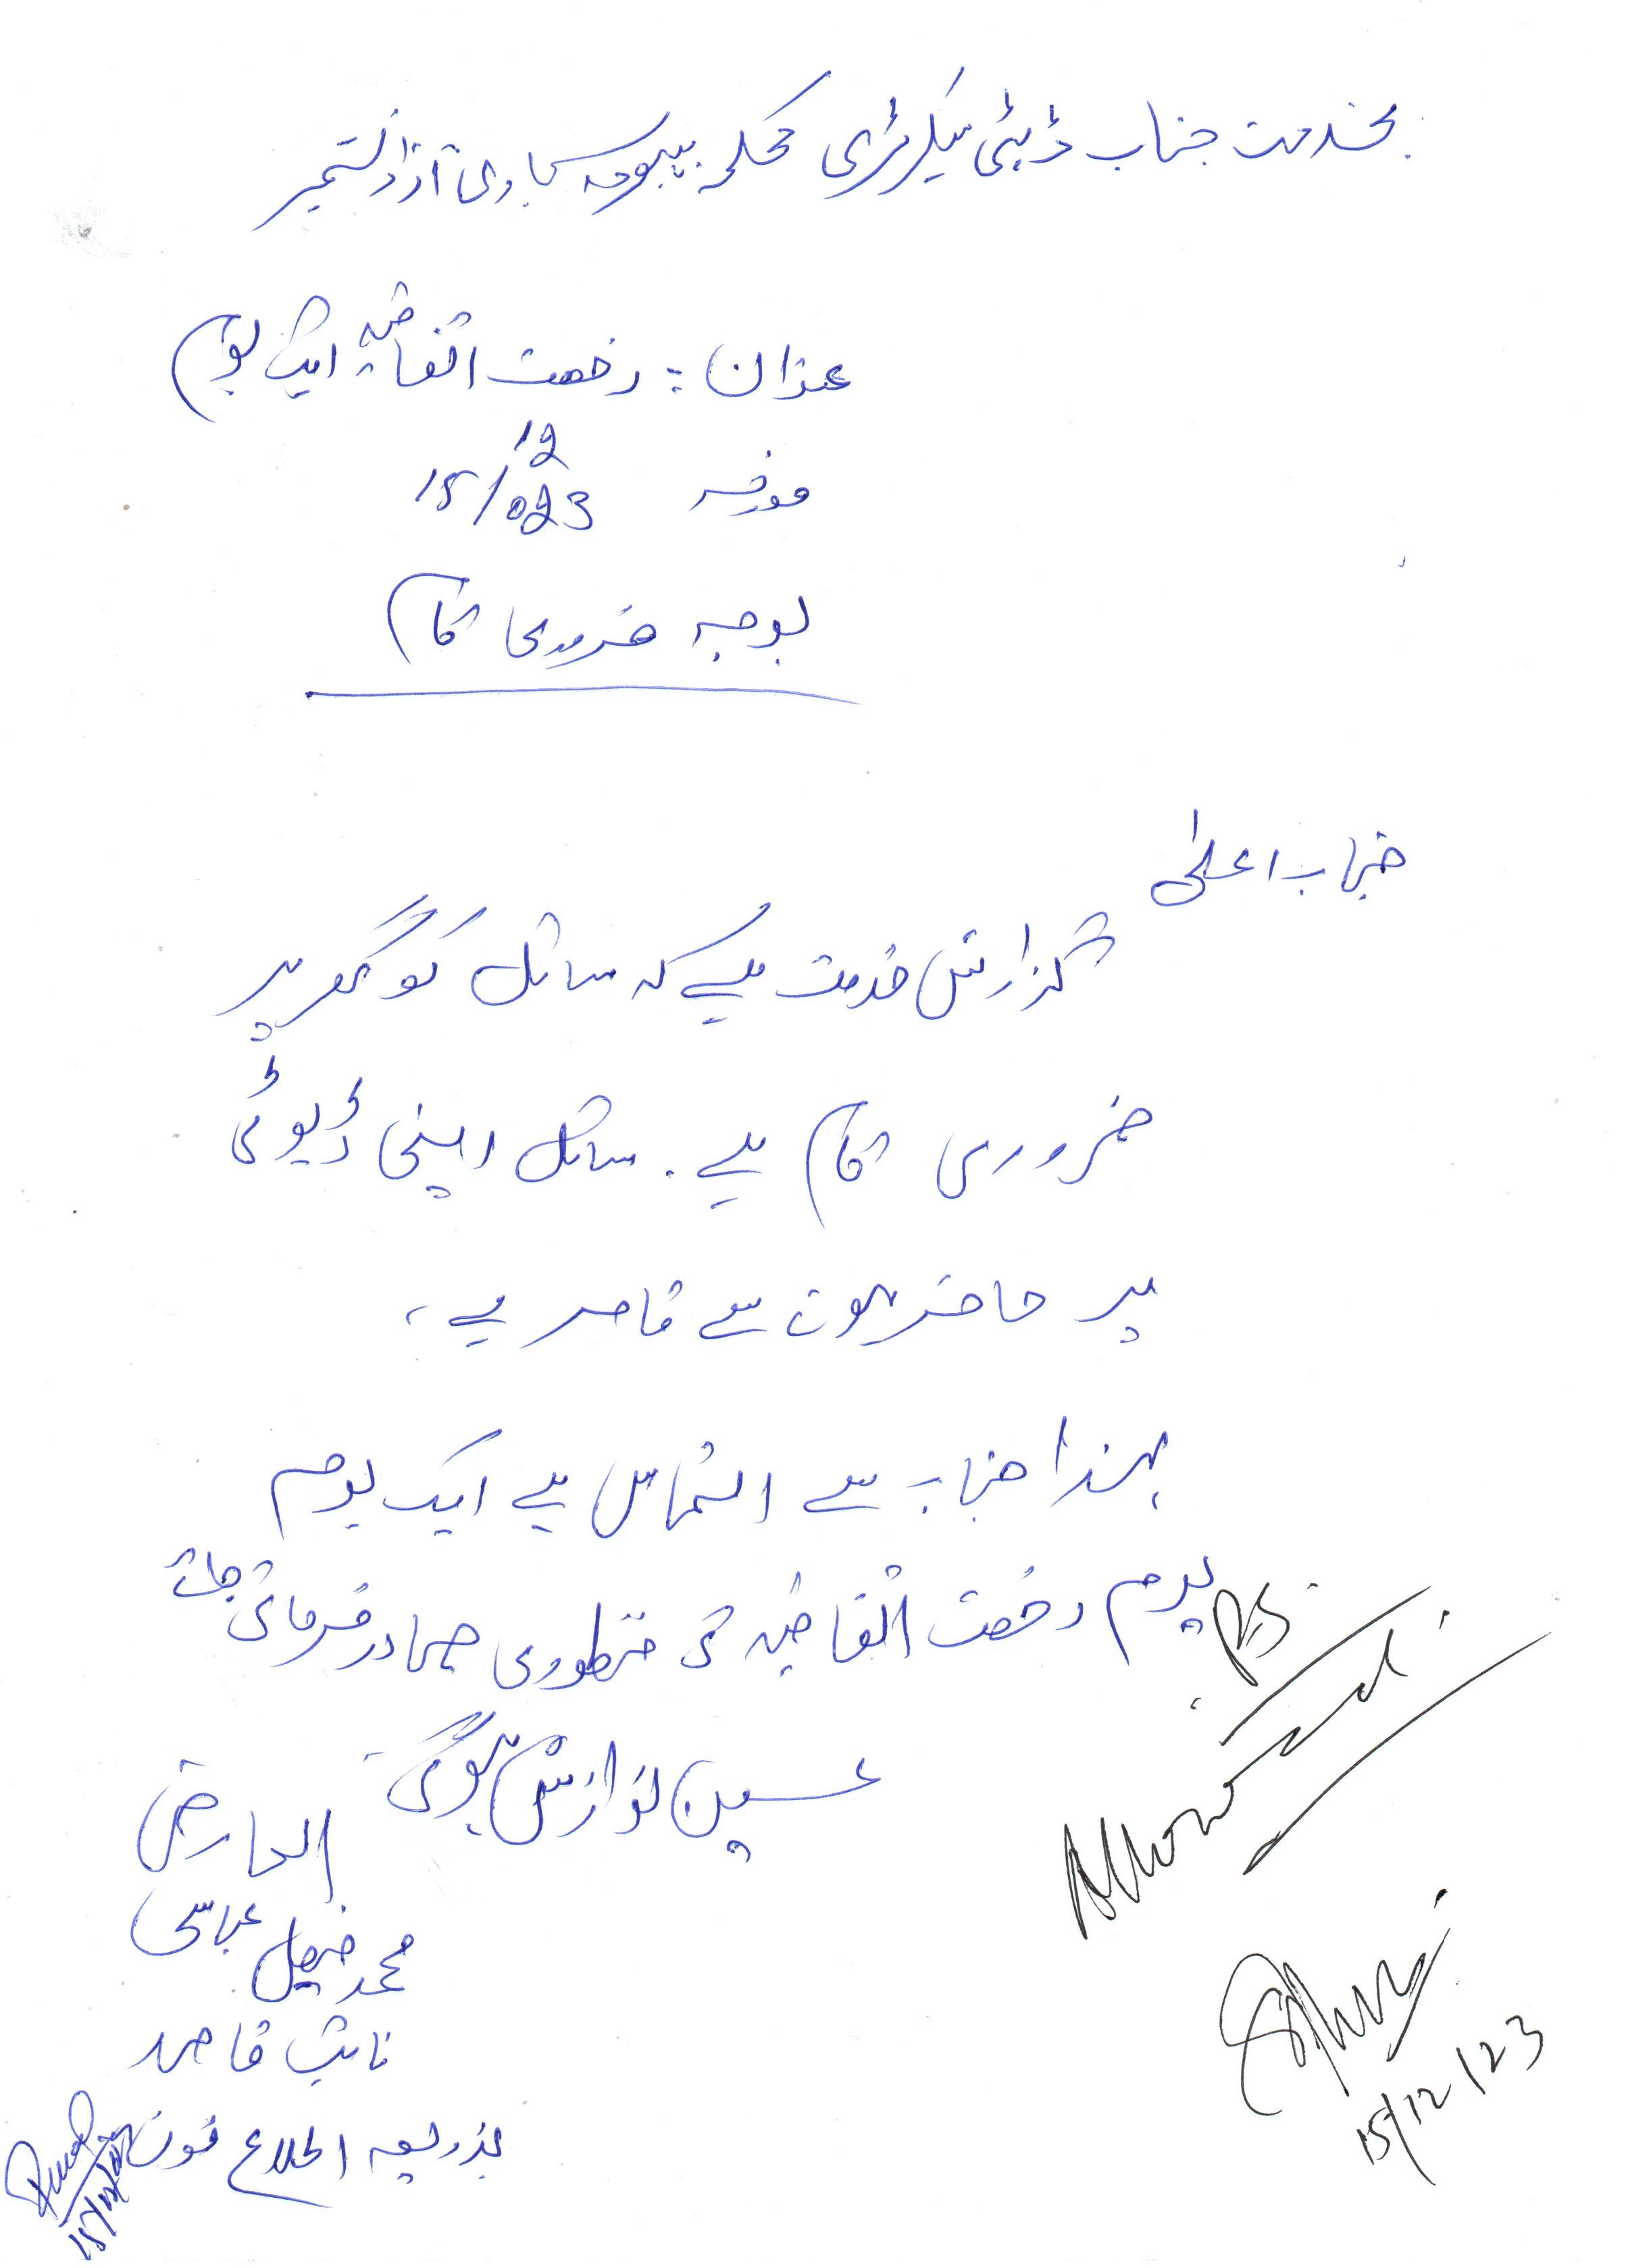 بخدمت جناب ڈپٹی سیکرٹری محکمہ آزاد کشمیر
عنوان: رخصت اتفاقیہ ایک یوم
مورخہ 15/12/023
بوجہ ضروری کام
جناب اعلیٰ
گزارش خدمت ہے کہ سائل کو گھر پر
ضروری کام ہے۔ سائل اپنی ڈیوٹی
پر حاضر ہونے سے قاصر ہے،
لہذا جناب سے التماس ہے ایک یوم
یوم رخصت اتفاقیہ کی منظوری صادر فرمائی جائے
عین نوازش ہوگی۔
العارض
محمد عباسی
نائب قاصد
بذریعہ اطلاع فون
P.S.
Allowed.
15/12/23